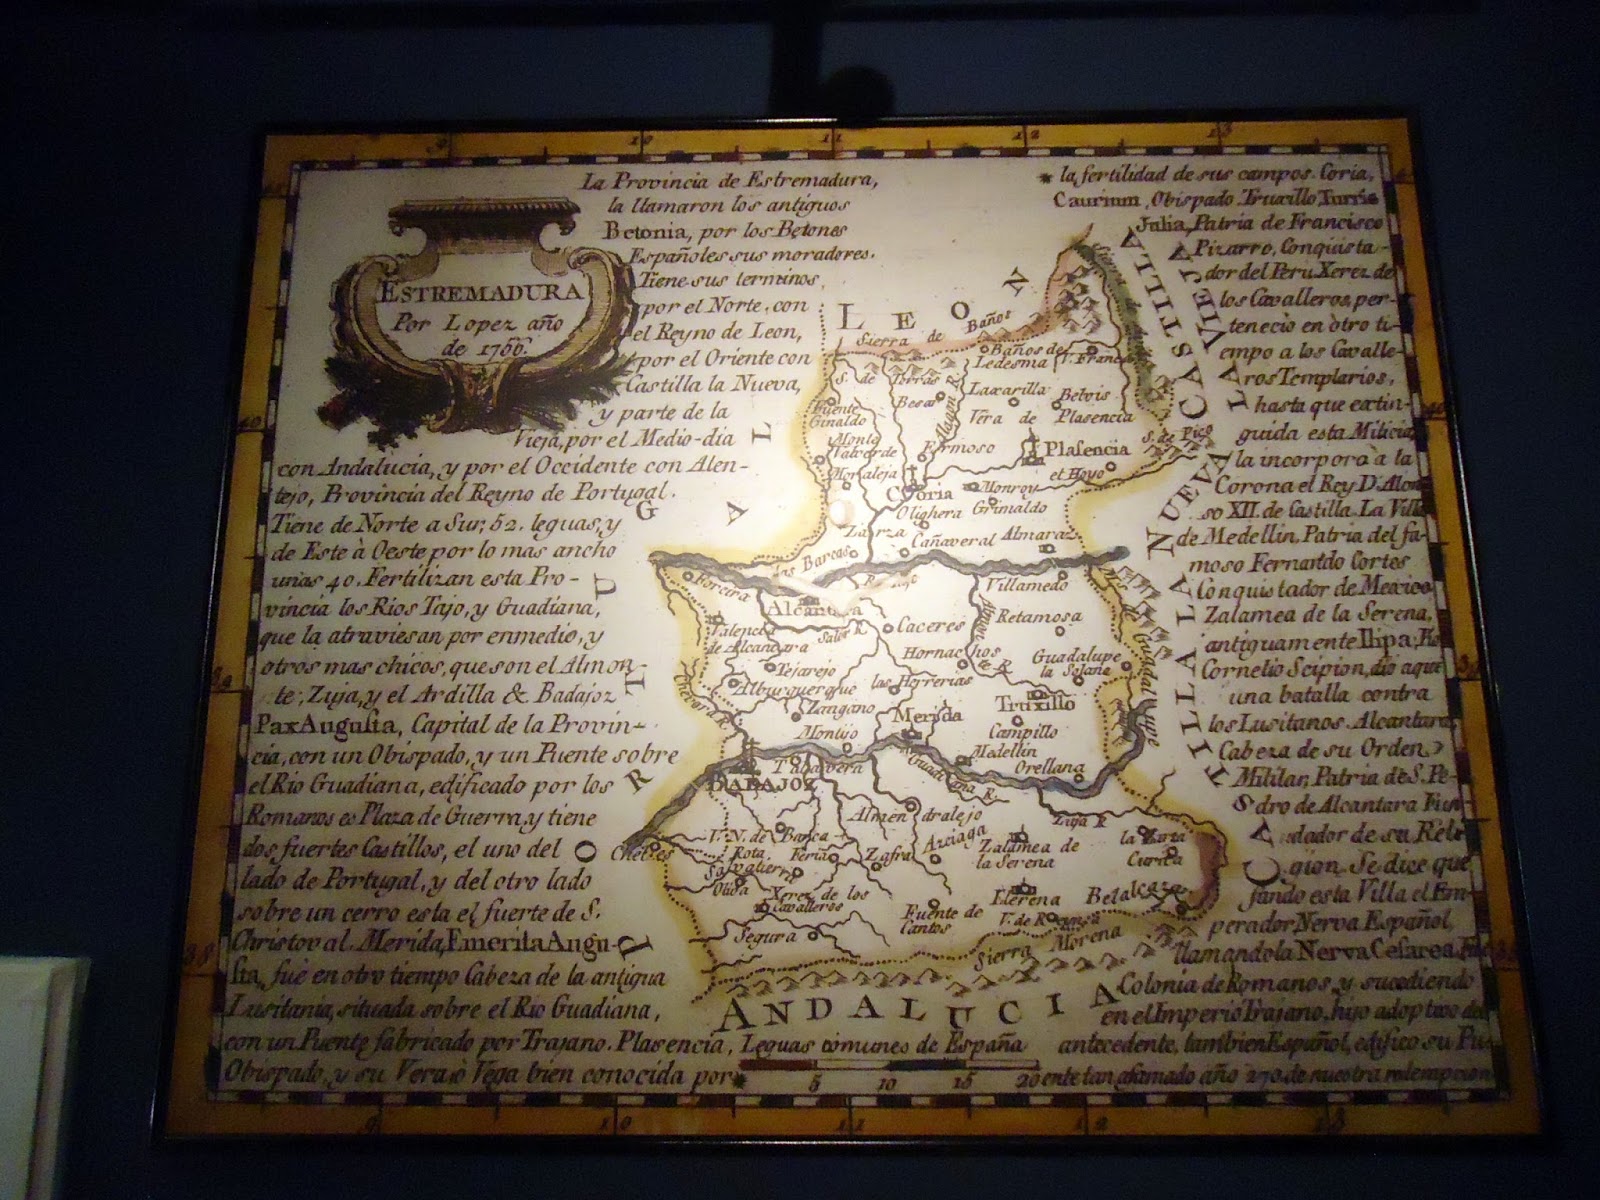 ESTREMADURA
Por Lopez año
de 1766.
La Provincia de Estremadura,
la llamaron los antiguos
Betonia, por los Betones
Españoles sus moradores.
Tiene sus terminos,
por el Norte, con
el Reyno de Leon,
por el Oriente con
Castilla la Nueva,
y parte de la
Vieja, por el Medio-dia
con Andalucia, y por el Occidente con Alen-
tejo, Provincia del Reyno de Portugal.
Tiene de Norte a Sur; 52. leguas, y
de Este à Oeste por lo mas ancho
unas 40. Fertilizan esta Pro-
vincia los Rios Tajo, y Guadiana,
que la atraviesan por enmedio, y
otros mas chicos, que son el Almon-
te, Zuja, y el Ardilla & Badajoz
Pax Augusta, Capital de la Provin-
cia, con un Obispado, y un Puente sobre
el Rio Guadiana, edificado por los
Romanos es Plaza de Guerra, y tiene
dos fuertes Castillos, el uno del
lado de Portugal, y del otro lado
sobre un cerro esta el fuerte de S.
Christoval. Merida, Emerita Augu-
sta, fuè en otro tiempo Cabeza de la antigua
Lusitania, situada sobre el Rio Guadiana,
con un Puente fabricado por Trajano. Plasencia,
Obispado, y su Vera ò Vega bien conocida por *
* la fertilidad de sus campos. Coria,
Caurium, Obispado. Truxillo, Turris
Julia, Patria de Francisco
Pizarro, Conquista-
dor del Peru. Xerez de
los Cavalleros, per-
teneciò en otro ti-
empo a los Cavalle-
ros Templarios,
hasta que extin-
guida esta Milicia,
la incorporò à la
Corona el Rey D. Alon
so XII. de Castilla. La Villa
de Medellin, Patria del fa-
moso Fernando Cortes
Conquistador de Mexico,
Zalamea de la Serena,
antiguamente Ilipa,
Cornelio Scipion, diò aqui
una batalla contra
los Lusitanos. Alcantara,
Cabeza de su Orden
Militar, Patria de S. Pe-
dro de Alcantara Fun-
dador de su Reli
gion. Se dice que
fundo esta Villa el Em-
perador, Nerva Español,
llamandola Nerva Cesarea,
Colonia de Romanos, y sucediendo
en el Imperio Trajano, hijo adoptivo del
antecedente, tambien Español, edifico su Pu-
ente tan afamado año 270. de nuestra redempcion
LEON
CASTILLA LA VIEJA
CASTILLA LA NUEVA
PORTUGAL
ANDALUCIA
Sierra de Baños
Baños de
Ledesma
V. Franca
S. de Torras
Laxarilla
Belvis
Besar
Alagon R.
Vera de Plasencia
Fuente Ginaldo
Monte
Valverde
Fermoso
Plasencia
S. de Pico
Horaleja
Coria
Monroy
el Hoyo
Olighera
Grimaldo
Zarza
Cañaveral
Almaraz
las Barcas
Ferreira
Alcantara
Villamedo
Retamosa
Valencia
de Alcantara
Salor R.
Caceres
Hornachos
Guadalupe
la Solana
Tejarejo
Alburquerque
las Herrerias
Chevora R.
Zangano
Merida
Truxillo
Campillo
Montijo
Medellin
Orellana
Guadiana R.
BADAJOZ
Talavera
Almendralejo
Arciaga
Zuja R.
Chelves
V. N. de Barca
Rota
Feria
Zafra
Zalamea de
la Serena
Salvatierra
Oliva
Xerez de los
Cavalleros
Fuente de
Cantos
Ellerena
Belalcazar
Segura
Sierra Morena
Leguas comunes de España
5 10 15 20
10 11 12 13
9 10 11 12 13
40
39
38